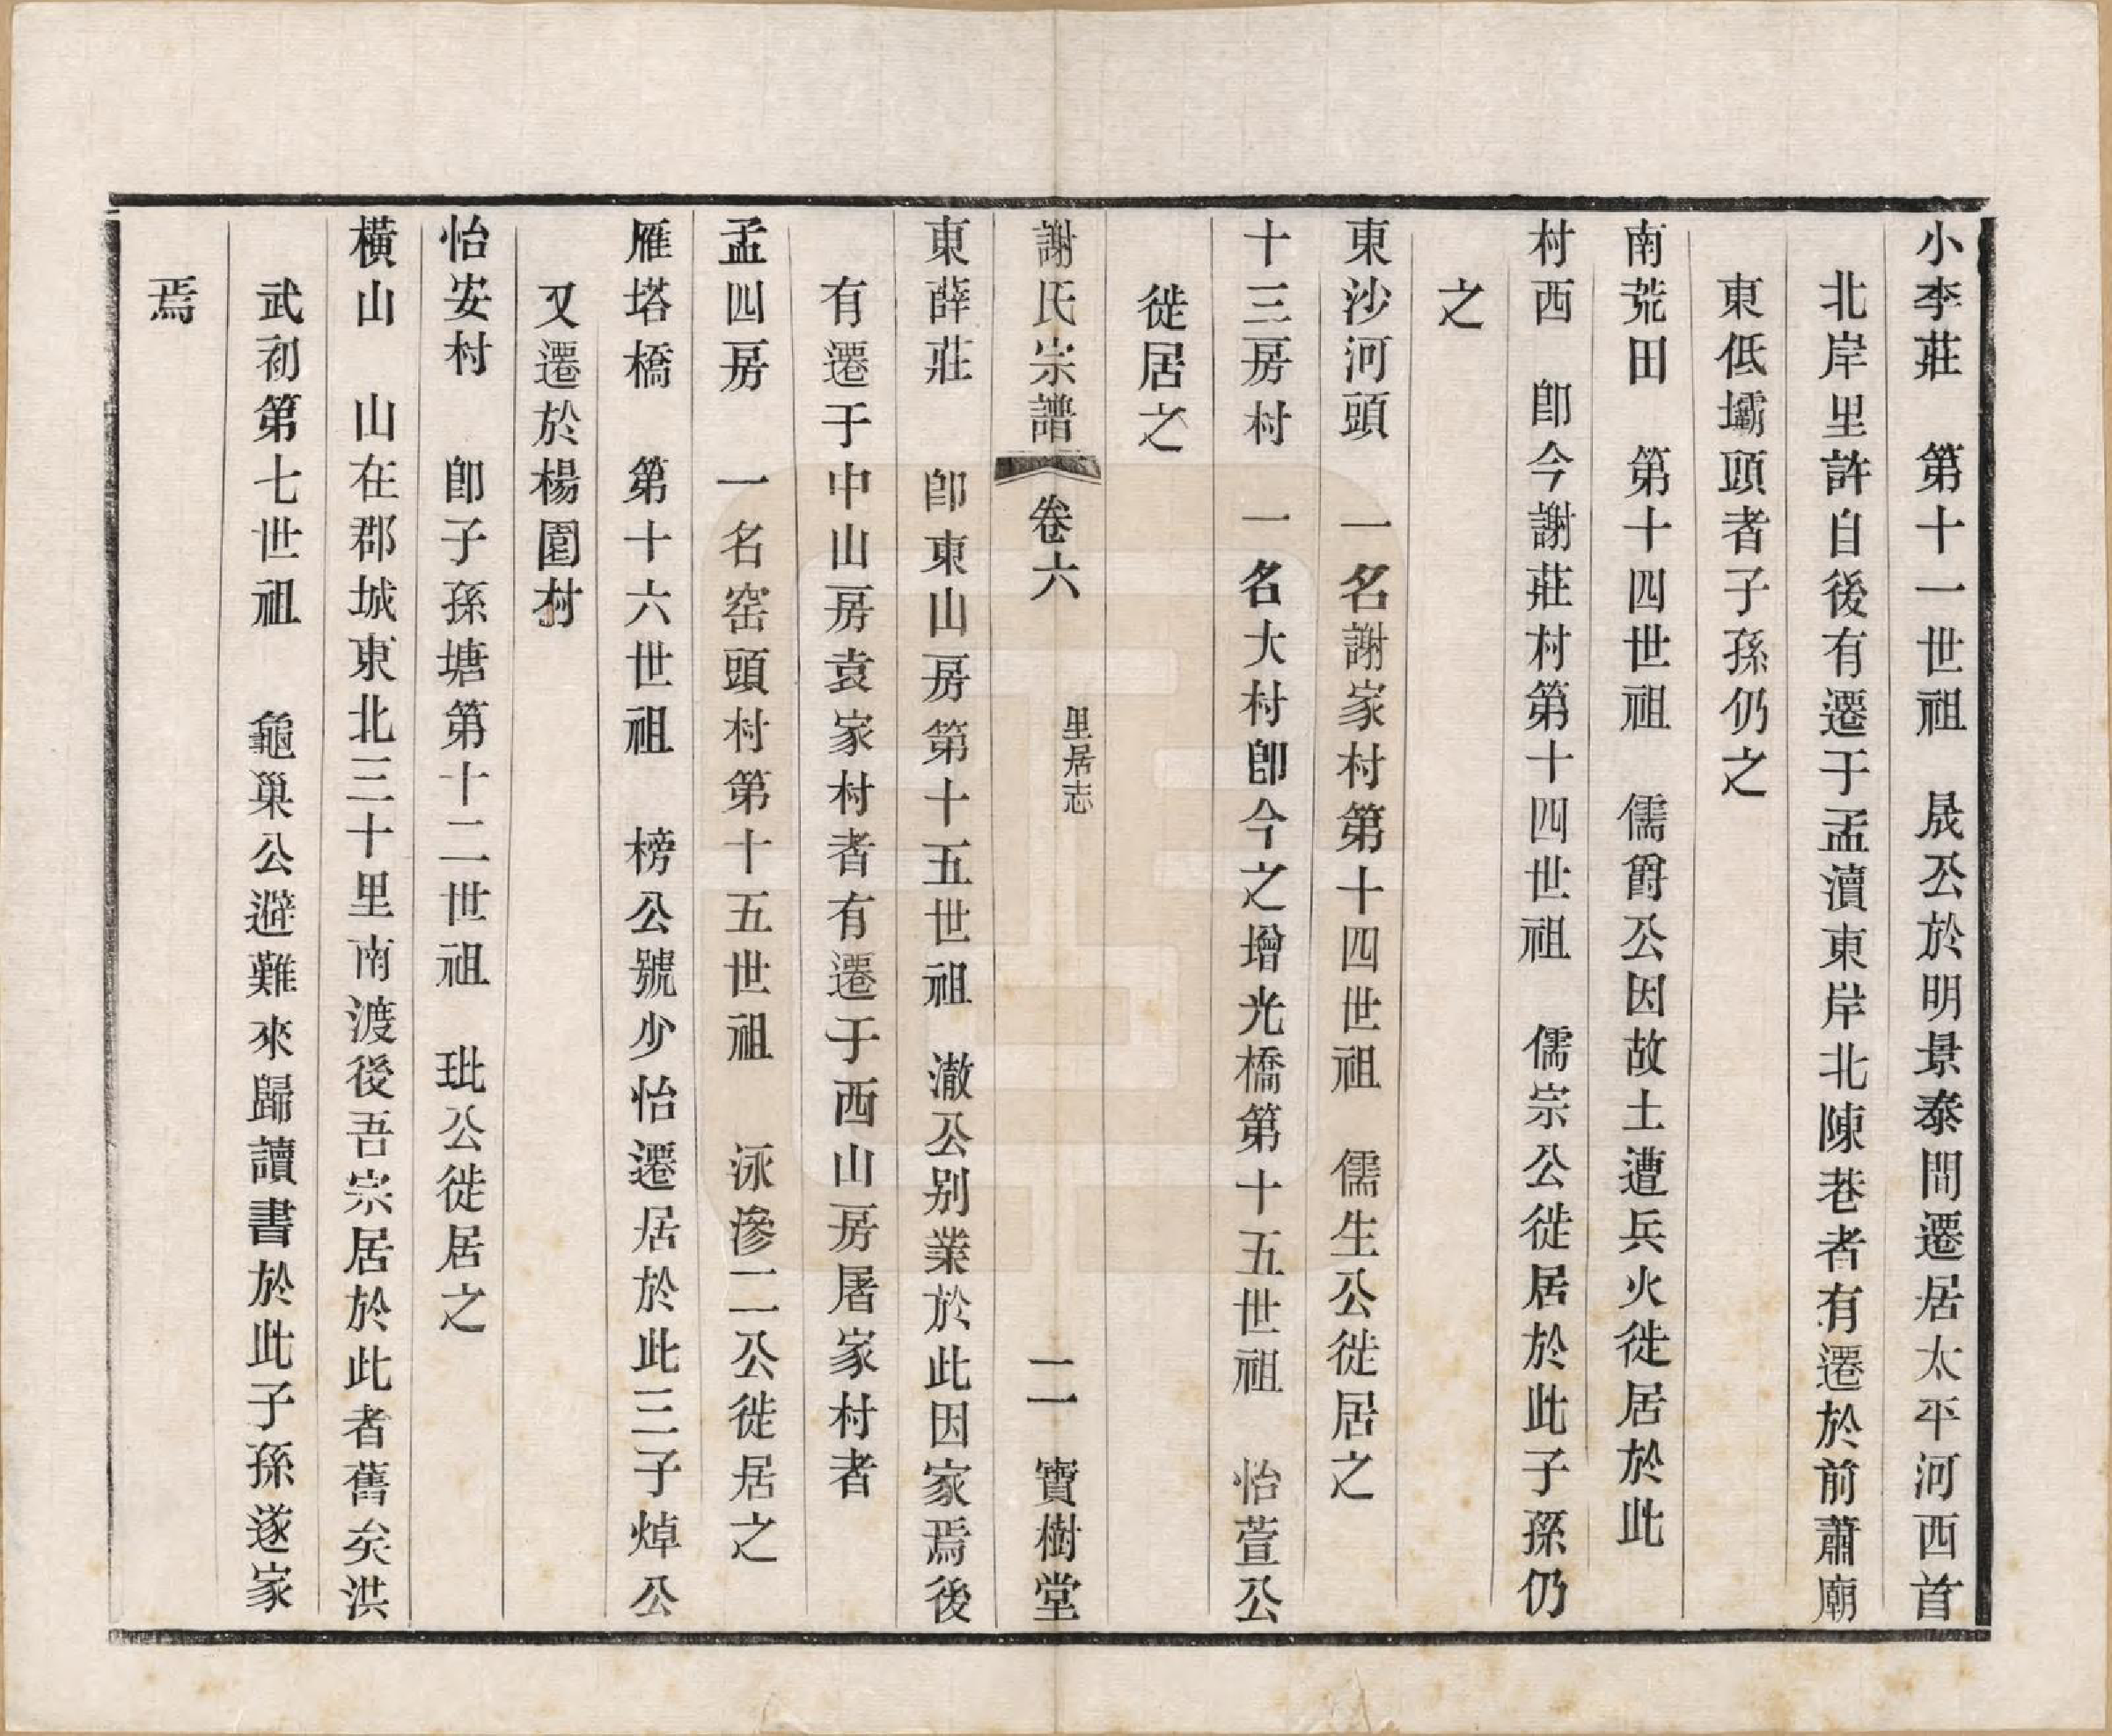 小李莊　第十一世祖　晟公於明景泰間遷居太平河西首
北岸里許自後有遷于孟瀆東岸北陳巷者有遷於前蕭廟
東低壩頭者子孫仍之
南荒田　第十四世祖　儒爵公因故土遭兵火徙居於此
村西　卽今謝莊村第十四世祖　儒宗公徙居於此子孫仍
之
東沙河頭　一名謝家村第十四世祖　儒生公徙居之
十三房村　一名大村卽今之增光橋第十五世祖　怡萱公
徙居之
謝氏宗譜　卷六　里居志　二　寶樹堂
東薛莊　卽東山房第十五世祖　澈公别業於此因家焉後
有遷于中山房袁家村者有遷于西山房屠家村者
孟四房　一名窑頭村第十五世祖　泳滲二公徙居之
雁塔橋　第十六世祖　榜公號少怡遷居於此三子焯公
又遷於楊園村
怡安村　卽子孫塘第十二世祖　玭公徙居之
橫山　山在郡城東北三十里南渡後吾宗居於此者舊矣洪
武初第七世祖　龜巢公避難來歸讀書於此子孫遂家
焉